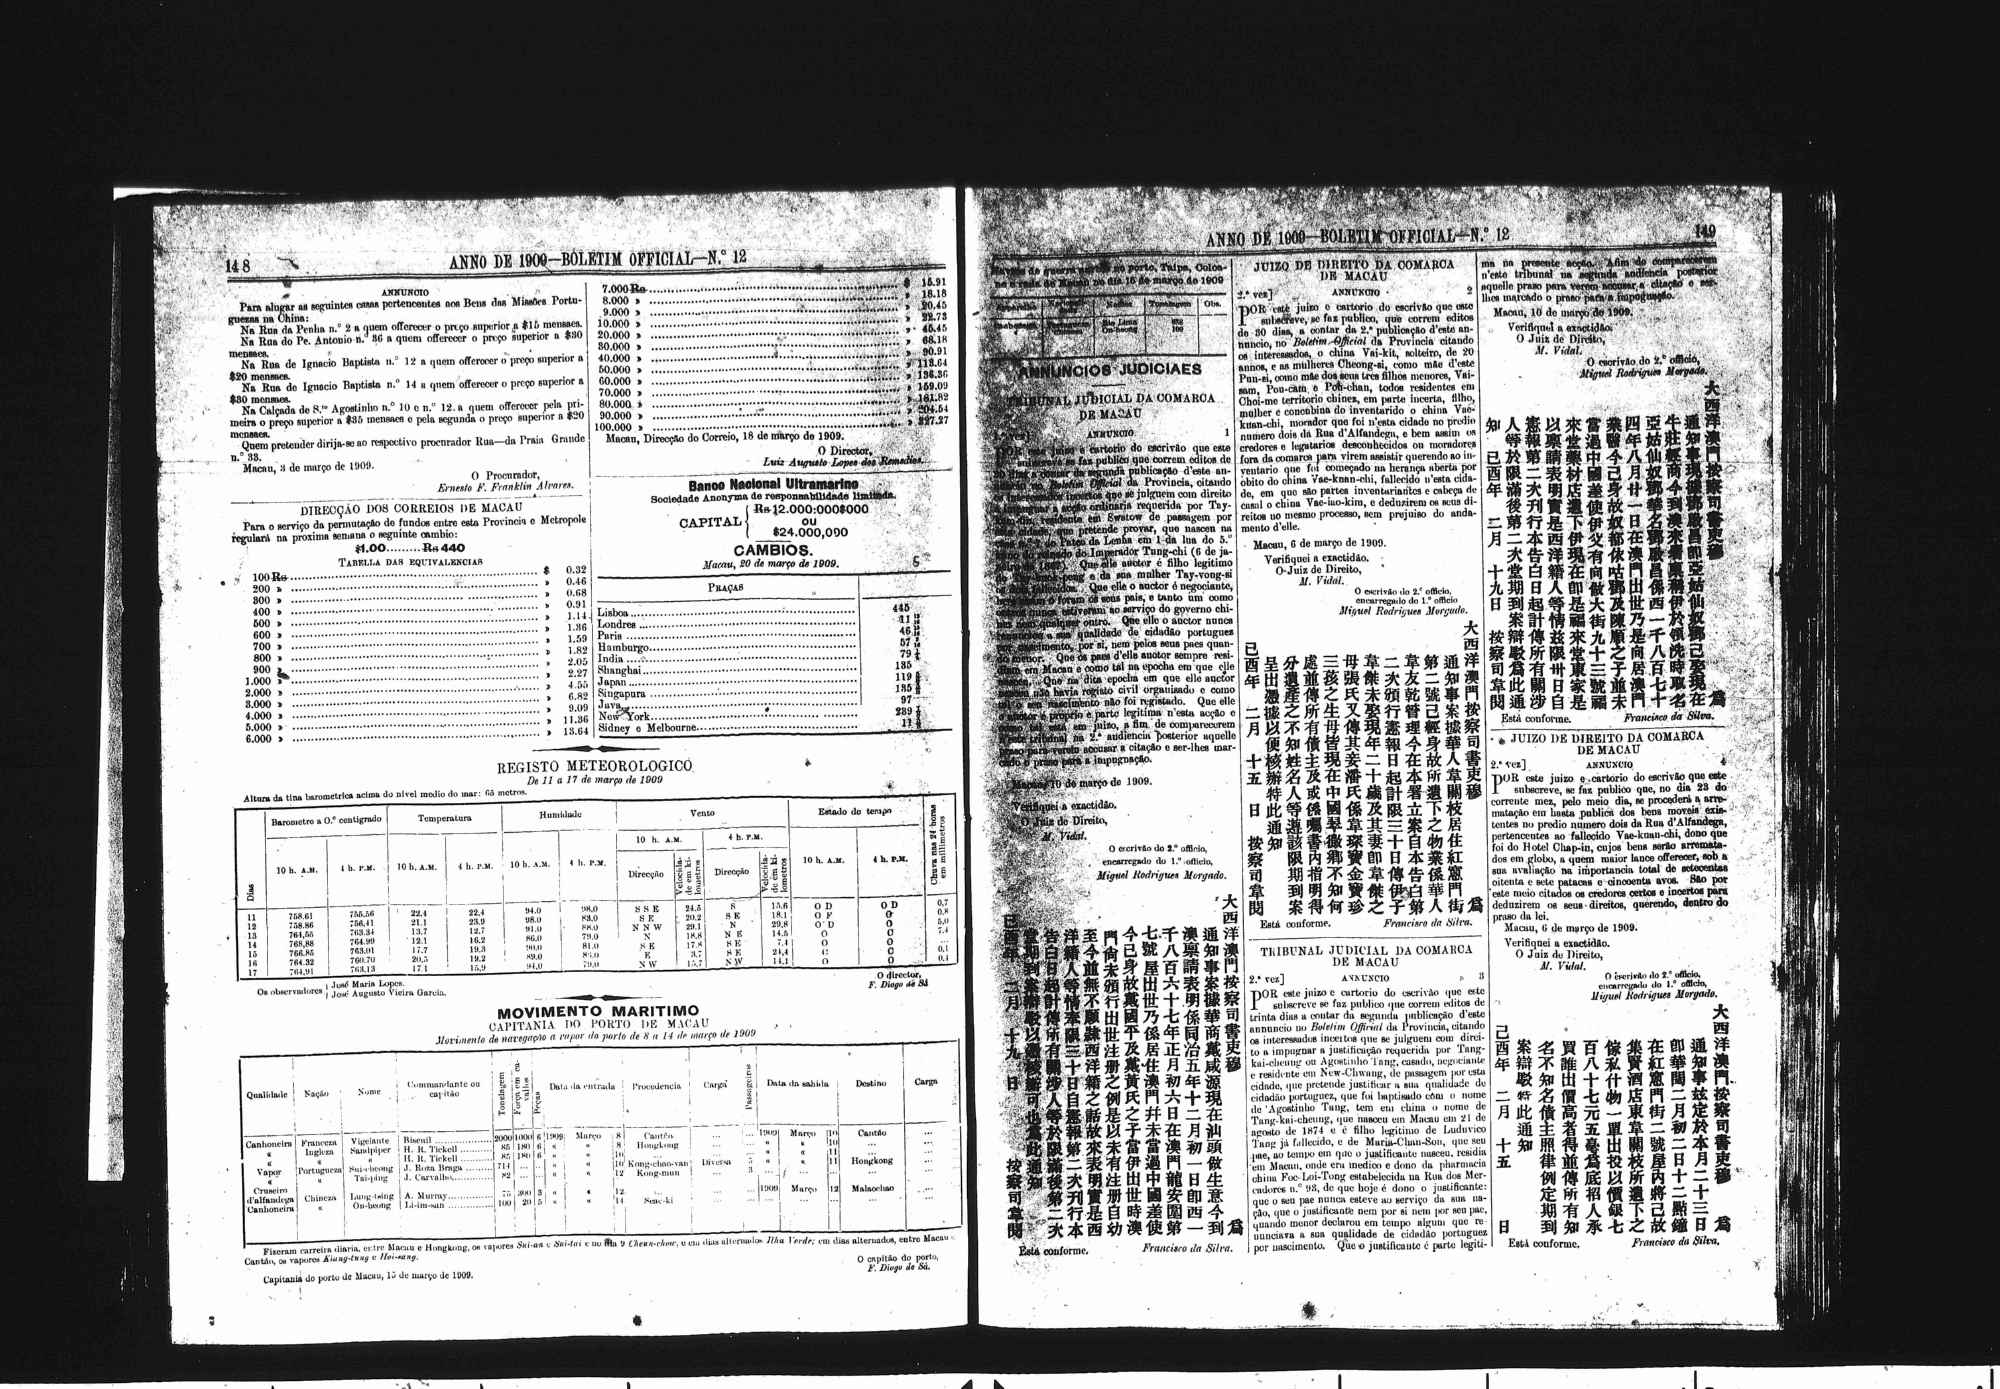 148
ANNO DE 1909—BOLETIM OFFICIAL—N.º 12
ANNUNCIO
Para alugar as seguintes casas pertencentes aos Bens das Missões Portu-
guezas na China:
Na Rua da Penha n.º 2 a quem offerecer o preço superior a $15 mensaes.
Na Rua do Pe. Antonio n.º 36 a quem offerecer o preço superior a $30
mensaes.
Na Rua de Ignacio Baptista n.º 12 a quem offerecer o preço superior a
$20 mensaes.
Na Rua de Ignacio Baptista n.º 14 a quem offerecer o preço superior a
$30 mensaes.
Na Calçada de S.to Agostinho n.º 10 e n.º 12 a quem offerecer pela pri-
meira o preço superior a $35 mensaes e pela segunda o preço superior a $20
mensaes.
Quem pretender dirija-se ao respectivo procurador Rua—da Praia Grande
n.º 33.
Macau, 3 de março de 1909.
O Procurador,
Ernesto F. Franklin Alvares.
DIRECÇÃO DOS CORREIOS DE MACAU
Para o serviço da permutação de fundos entre esta Provincia e Metropole
regulará na proxima semana o seguinte cambio:
$1.00......... Rs 440
TABELLA DAS EQUIVALENCIAS
100 Rs $ 0.32
200 » » 0.46
300 » » 0.68
400 » » 0.91
500 » » 1.14
600 » » 1.36
700 » » 1.59
800 » » 1.82
900 » » 2.05
1.000 » » 2.27
2.000 » » 4.55
3.000 » » 6.82
4.000 » » 9.09
5.000 » » 11.36
6.000 » » 13.64
7.000 Rs $ 15.91
8.000 » » 18.18
9.000 » » 20.45
10.000 » » 22.73
20.000 » » 45.45
30.000 » » 68.18
40.000 » » 90.91
50.000 » » 113.64
60.000 » » 136.36
70.000 » » 159.09
80.000 » » 181.82
90.000 » » 204.54
100.000 » » 227.27
Macau, Direcção do Correio, 18 de março de 1909.
O Director,
Luiz Augusto Lopes dos Remedios.
Banco Nacional Ultramarino
Sociedade Anonyma de responsabilidade limitada.
CAPITAL
Rs 12.000:000$000
ou
$24.000,000
CAMBIOS.
Macau, 20 de março de 1909.
PRAÇAS
Lisboa 445
Londres
Paris
Hamburgo
India
Shanghai 135
Japan
Singapura
Java 97
New York
Sidney e Melbourne
REGISTO METEOROLOGICO
De 11 a 17 de março de 1909
Altura da tina barometrica acima do nivel medio do mar: 65 metros.
Dias Barometro a O.º centigrado Temperatura Humidade Vento Estado do tempo Chuva nas 24 horas em millimetros
10 h. A.M. 4 h. P.M. 10 h. A.M. 4 h. P.M. 10 h. A.M. 4 h. P.M. 10 h. A.M. 4 h. P.M. 10 h. A.M. 4 h. P.M.
Direcção Velocidade em kilometros Direcção Velocidade em kilometros
11 758.61 755.56 22,4 22,4 94.0 98.0 S S E 24.5 S 15.6 O D O D 0.7
12 758.86 756.41 21.1 23.9 98.0 83.0 S E 20.2 S E 18.1 O F O 0.8
13 764.55 763.34 13.7 12.7 91.0 88.0 N N W 29.1 N 29.8 O D O 5.0
14 768.88 764.99 12.1 16.2 86.0 79.0 N 18.8 N E 14.5 O O 7.4
15 766.85 763.01 17.7 19.3 90.0 81.0 S E 17.8 S E 7.4 O O
16 764.32 760.70 20.5 19.2 89.0 E 3.7 S E 24.4 O 0.1
17 764.91 763.13 17.1 15.9 94.0 79.0 N W 15.7 N W 14.1 O O 0.4
Os observadores José Maria Lopes.
José Augusto Vieira Garcia.
O director,
F. Diogo de Sá
MOVIMENTO MARITIMO
CAPITANIA DO PORTO DE MACAU
Movimento de navegação a vapor do porto de 8 a 14 de março de 1909
Qualidade Nação Nome Commandante ou capitão Tonelagem Força em cavallos Peças Data da entrada Procedencia Carga Passageiros Data da sahida Destino Carga
Canhoneira Franceza Vigelante Biseuil 2000 1000 6 1909 Março 8 Cantão 1909 Março 10 Cantão
« Ingleza Sandpiper H. R. Tickell 85 180 6 « « 8 Hongkong « « 10
« « « H. R. Tickell 85 180 6 « « 10 « « 11
Vapor Portugueza Sui-cheong J. Roza Braga 714 « « 10 Kong-chao-van Diversa « « 11 Hongkong
« « Tai-ping J. Carvalho 82 « « 12 Kong-mun
Cruseiro d'alfandega Chineza Lung-tsing A. Murray 75 300 3 « « 12 1909 Março 12 Malaochao
Canhoneira « On-heong Li-im-san 100 20 5 « « 14 Seac-ki
Fizeram carreira diaria, entre Macau e Hongkong, os vapores Sui-an e Sui-tai e no dia 9 Cheun-chow, e em dias alternados Ilha Verde; em dias alternados, entre Macau e
Cantão, os vapores Kiang-tung e Hoi-sang.
Capitania do porto de Macau, 15 de março de 1909.
O capitão do porto,
F. Diogo de Sá.
ANNO DE 1909—BOLETIM OFFICIAL—N.º 12
149
ANNUNCIOS JUDICIAES
TRIBUNAL JUDICIAL DA COMARCA
DE MACAU
ANNUNCIO 1
POR este juizo e cartorio do escrivão que este
subscreve se faz publico que correm editos de
30 dias a contar da segunda publicação d'este an-
nuncio no Boletim Official da Provincia, citando
os interessados incertos que se julguem com direito
a impugnar a acção ordinaria requerida por Tay-
residente em Swatow de passagem por
esta cidade, que pretende provar, que nasceu na
Pateo da Lenha em 1 da lua do 5.º
anno do reinado do Imperador Tung-chi (6 de ja-
neiro de 1867). Que elle auctor é filho legitimo
e da sua mulher Tay-vong-si
fallecidos. Que elle o auctor é negociante,
como o foram os seus pais, e tanto um como
outros nunca estiveram ao serviço do governo chi-
nez nem qualquer outro. Que elle o auctor nunca
renunciou a sua qualidade de cidadão portuguez
por nascimento, por si, nem pelos seus paes quan-
do menor. Que os paes d'elle auctor sempre resi-
diram em Macau e como tal na epocha em que elle
nasceu. Que na dita epocha em que elle auctor
nasceu não havia registo civil organisado e como
tal o seu nascimento não foi registado. Que elle
o auctor é proprio e parte legitima n'esta acção e
como tal está em juizo, a fim de comparecerem
n'este tribunal na 2.ª audiencia posterior aquelle
praso para verem accusar a citação e ser-lhes mar-
cado o praso para a impugnação.
Macau, 10 de março de 1909.
Verifiquei a exactidão.
O Juiz de Direito,
M. Vidal.
O escrivão do 2.º officio,
encarregado do 1.º officio,
Miguel Rodrigues Morgado.
大西洋澳門按察司書吏穆 爲
通知事案據華商戴咸源現在汕頭做生意今到
澳禀請表明係同治五年十二月初一日即西一
千八百六十七年正月初六日在澳門龍安圍第
七號屋出世乃係居住澳門幷未當過中國差使
今已身故戴國平及戴黃氏之子當伊出世時澳
門尙未頒行出世注册之例是以未有注册自幼
至今並無不願隸西洋籍之話故來表明實是西
洋籍人等情牽限三十日自憲報第二次刊行本
告白日起計傳所有關涉人等於限滿後第二次
堂期到案辯駁以憑核辦可也爲此通知
己酉年 二月 十九日 按察司韋閱
Está conforme. Francisco da Silva.
JUIZO DE DIREITO DA COMARCA
DE MACAU
2.ª vez] ANNUNCIO 2
POR este juizo e cartorio do escrivão que este
subscreve, se faz publico, que correm editos
de 30 dias, a contar da 2.ª publicação d'este an-
nuncio, no Boletim Official da Provincia citando
os interessados, o china Vai-kit, solteiro, de 20
annos, e as mulheres Cheong-si, como mãe d'este
Pun-si, como mãe dos seus tres filhos menores, Vai-
sam, Pou-cam e Pou-chan, todos residentes em
Choi-me territorio chinez, em parte incerta, filho,
mulher e concubina do inventariado o china Vae-
kuan-chi, morador que foi n'esta cidade no predio
numero dois da Rua d'Alfandega, e bem assim os
credores e legatarios desconhecidos ou moradores
fora da comarca para virem assistir querendo ao in-
ventario que foi começado na herança aberta por
obito do china Vae-kuan-chi, fallecido n'esta cida-
de, em que são partes inventariantes e cabeça de
casal o china Vae-iao-kim, e deduzirem os seus di-
reitos no mesmo processo, sem prejuiso do anda-
mento d'elle.
Macau, 6 de março de 1909.
Verifiquei a exactidão.
O Juiz de Direito,
M. Vidal.
O escrivão do 2.º officio,
encarregado do 1.º officio
Miguel Rodrigues Morgado.
大西洋澳門按察司書吏穆 爲
通知事案據華人韋關枝居住紅窻門街
第二號己經身故所遺下之物業係華人
韋友乾管理今在本署立案自本告白第
二次頒行憲報日起計限三十日傳伊子
韋傑未娶現年二十歲及其妻卽韋傑之
母張氏又傳其妾潘氏係韋琛寶金寶珍
三孩之生母皆現在中國翠微鄉不知何
處並傳所有債主及或係囑書內指明得
分遺產之不知姓名人等遊該限期到案
呈出憑據以便核辦特此通知
己酉年 二月 十五 日 按察司韋閱
Está conforme. Francisco da Silva.
TRIBUNAL JUDICIAL DA COMARCA
DE MACAU
2.ª vez] ANNUNCIO 3
POR este juizo e cartorio do escrivão que este
subscreve se faz publico que correm editos de
trinta dias a contar da segunda publicação d'este
annuncio no Boletim Official da Provincia, citando
os interessados incertos que se julguem com direi-
to a impugnar a justificação requerida por Tang-
kai-cheung ou Agostinho Tang, casado, negociante
e residente em New-Chwang, de passagem por esta
cidade, que pretende justificar a sua qualidade de
cidadão portuguez, que foi baptisado com o nome
de Agostinho Tang, tem em china o nome de
Tang-kai-cheung, que nasceu em Macau em 21 de
agosto de 1874 e é filho legitimo de Luduvico
Tang já fallecido, e de Maria-Chan-Son, que seu
pae, ao tempo em que o justificante nasceu, residia
em Macau, onde era medico e dono da pharmacia
china Foc-Loi-Tong estabelecida na Rua dos Mer-
cadores n.º 93, de que hoje é dono o justificante:
que o seu pae nunca esteve ao serviço da sua na-
ção, que o justificante nem por si nem por seu pae,
quando menor declarou em tempo algum que re-
nunciava a sua qualidade de cidadão portuguez
por nascimento. Que o justificante é parte legiti-
ma na presente acção. Afim de comparecerem
n'este tribunal na segunda audiencia posterior
aquelle praso para verem accusar a citação e ser-
lhes marcado o praso para a impugnação.
Macau, 10 de março de 1909.
Verifiquei a exactidão.
O Juiz de Direito,
M. Vidal.
O escrivão do 2.º officio,
Miguel Rodrigues Morgado.
大西洋澳門按察司書吏穆 爲
通知事現據鄧啟昌卽亞姑仙奴鄧己娶現在
牛莊經商今到澳來署禀稱伊於領洗時取名
亞姑仙奴鄧華名鄧啟昌係西一千八百七十
四年八月廿一日在澳門出世乃是向居澳門
業醫今己身故奴都依咕鄧及陳順之子並未
當過中國差使伊父有向做大街九十三號福
來堂藥材店遺下伊現在卽是福來堂東家是
以禀請表明實是西洋籍人等情茲限卅日自
憲報第二次刊行本告白日起計傳所有關涉
人等於限滿後第二次堂期到案辯駁爲此通
知
己酉年 二月 十九日 按察司韋閱
Está conforme. Francisco da Silva.
JUIZO DE DIREITO DA COMARCA
DE MACAU
2.ª vez] ANNUNCIO 4
POR este juizo e cartorio do escrivão que este
subscreve, se faz publico que, no dia 23 do
corrente mez, pelo meio dia, se procederá a arre-
matação em hasta publica dos bens moveis exis-
tentes no predio numero dois da Rua d'Alfandega,
pertencentes ao fallecido Vae-kuan-chi, dono que
foi do Hotel Chap-in, cujos bens serão arremata-
dos em globo, a quem maior lance offerecer, sob a
sua avaliação na importancia total de setecentas
oitenta e sete patacas e cincoenta avos. São por
este meio citados os credores certos e incertos para
deduzirem os seus direitos, querendo, dentro do
praso da lei.
Macau, 6 de março de 1909.
Verifiquei a exactidão.
O Juiz de Direito,
M. Vidal.
O escrivão do 2.º officio,
encarregado do 1.º officio,
Miguel Rodrigues Morgado.
大西洋澳門按察司書吏穆 爲
通知事茲定於本月二十三日
卽華閏二月初二日十二點鐘
在紅窻門街二號屋內將己故
集賢酒店東韋關枝所遺下之
傢私什物一單出投以價銀七
百八十七元五毫爲底招人承
買誰出價高者得並傳所有知
名不知名債主照律例定期到
案辯駁特此通知
己酉年 二月 十五 日
Está conforme. Francisco da Silva.